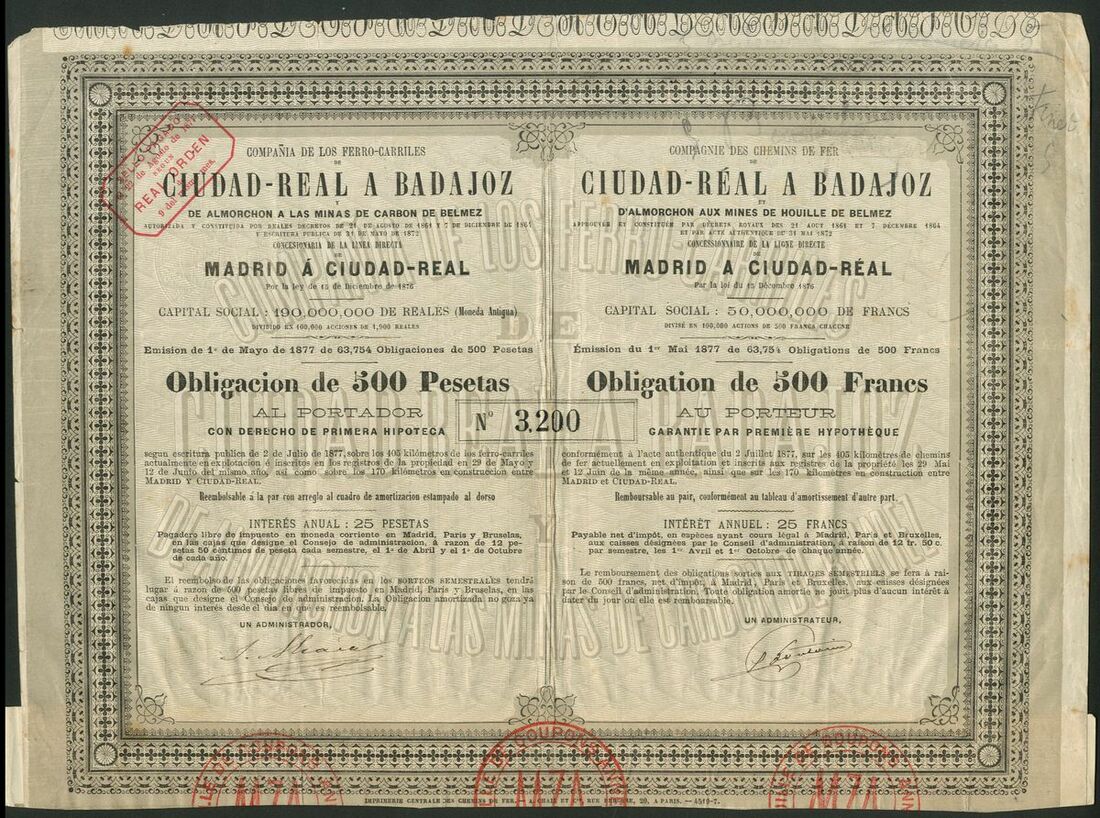 COMPAÑIA DE LOS FERRO-CARRILES
DE
CIUDAD-REAL A BADAJOZ
Y
DE ALMORCHON A LAS MINAS DE CARBON DE BELMEZ
AUTORIZADA Y CONSTITUIDA POR REALES DECRETOS DE 21 DE AGOSTO DE 1861 Y 7 DE DICIEMBRE DE 1864
Y ESCRITURA PUBLICA DE 31 DE MAYO DE 1872
CONCESIONARIA DE LA LINEA DIRECTA
DE
MADRID Á CIUDAD-REAL
Por la ley de 15 de Diciembre de 1876
CAPITAL SOCIAL : 190,000,000 DE REALES (Moneda Antigua)
DIVIDIDO EN 100,000 ACCIONES DE 1,900 REALES
Emision de 1º de Mayo de 1877 de 63,754 Obligaciones de 500 Pesetas
Obligacion de 500 Pesetas
AL PORTADOR
CON DERECHO DE PRIMERA HIPOTECA
segun escritura publica de 2 de Julio de 1877, sobre los 405 kilómetros de los ferro-carriles
actualmente en explotacion é inscritos en los registros de la propiedad en 29 de Mayo y
12 de Junio del mismo año, asi como sobre los 170 kilometros en construccion entre
MADRID Y CIUDAD-REAL.
Reembolsable á la par con arreglo al cuadro de amortizacion estampado al dorso
INTERÉS ANUAL : 25 PESETAS
Pagadero libre de impuesto en moneda corriente en Madrid, Paris y Bruselas,
en las cajas que designe el Consejo de administracion, à razon de 12 pe-
setas 50 céntimos de peseta cada semestre, el 1º de Abril y el 1º de Octubre
de cada año.
El reembolso de las obligaciones favorecidas en los SORTEOS SEMESTRALES tendrá
lugar á razon de 500 pesetas libres de impuesto en Madrid, Paris y Bruselas, en
las cajas que designe el Consejo de administracion. La Obligacion amortizada no goza ya
de ningun interés desde el dia en que es reembolsable.
UN ADMINISTRADOR,
Nº 3.200
COMPAGNIE DES CHEMINS DE FER
DE
CIUDAD-RÉAL A BADAJOZ
ET
D'ALMORCHON AUX MINES DE HOUILLE DE BELMEZ
APPROUVÉE ET CONSTITUÉE PAR DÉCRETS ROYAUX DES 21 AOUT 1861 ET 7 DÉCEMBRE 1864
ET PAR ACTE AUTHENTIQUE DU 31 MAI 1872
CONCESSIONNAIRE DE LA LIGNE DIRECTE
DE
MADRID A CIUDAD-RÉAL
Par la loi du 15 Décembre 1876
CAPITAL SOCIAL : 50,000,000 DE FRANCS
DIVISÉ EN 100,000 ACTIONS DE 500 FRANCS CHACUNE
Émission du 1er Mai 1877 de 63,754 Obligations de 500 Francs
Obligation de 500 Francs
AU PORTEUR
GARANTIE PAR PREMIÈRE HYPOTHÈQUE
conformément à l'acte authentique du 2 Juillet 1877, sur les 405 kilomètres de chemins
de fer actuellement en exploitation et inscrits aux registres de la propriété les 29 Mai
et 12 Juin de la même année, ainsi que sur les 170 kilomètres en construction entre
MADRID et CIUDAD-RÉAL.
Remboursable au pair, conformément au tableau d'amortissement d'autre part.
INTÉRÊT ANNUEL : 25 FRANCS
Payable net d'impôt, en espèces ayant cours légal à Madrid, Paris et Bruxelles,
aux caisses désignées par le Conseil d'administration, à raison de 12 fr. 50 c.
par semestre, les 1er Avril et 1er Octobre de chaque année.
Le remboursement des obligations sorties aux TIRAGES SEMESTRIELS se fera à rai-
son de 500 francs, net d'impôt, à Madrid, Paris et Bruxelles, aux caisses désignées
par le Conseil d'administration. Toute obligation amortie ne jouit plus d'aucun intérêt à
dater du jour où elle est remboursable.
UN ADMINISTRATEUR,
REAL ORDEN
COMPAÑIA DE LOS FERRO-CARRILES
DE
CIUDAD-REAL A BADAJOZ
Y
DE ALMORCHON A LAS MINAS DE CARBON DE BELMEZ
MZA
MZA
MZA
IMPRIMERIE CENTRALE DES CHEMINS DE FER. — A. CHAIX ET Cie, RUE BERGÈRE, 20, A PARIS. — 4510-7.